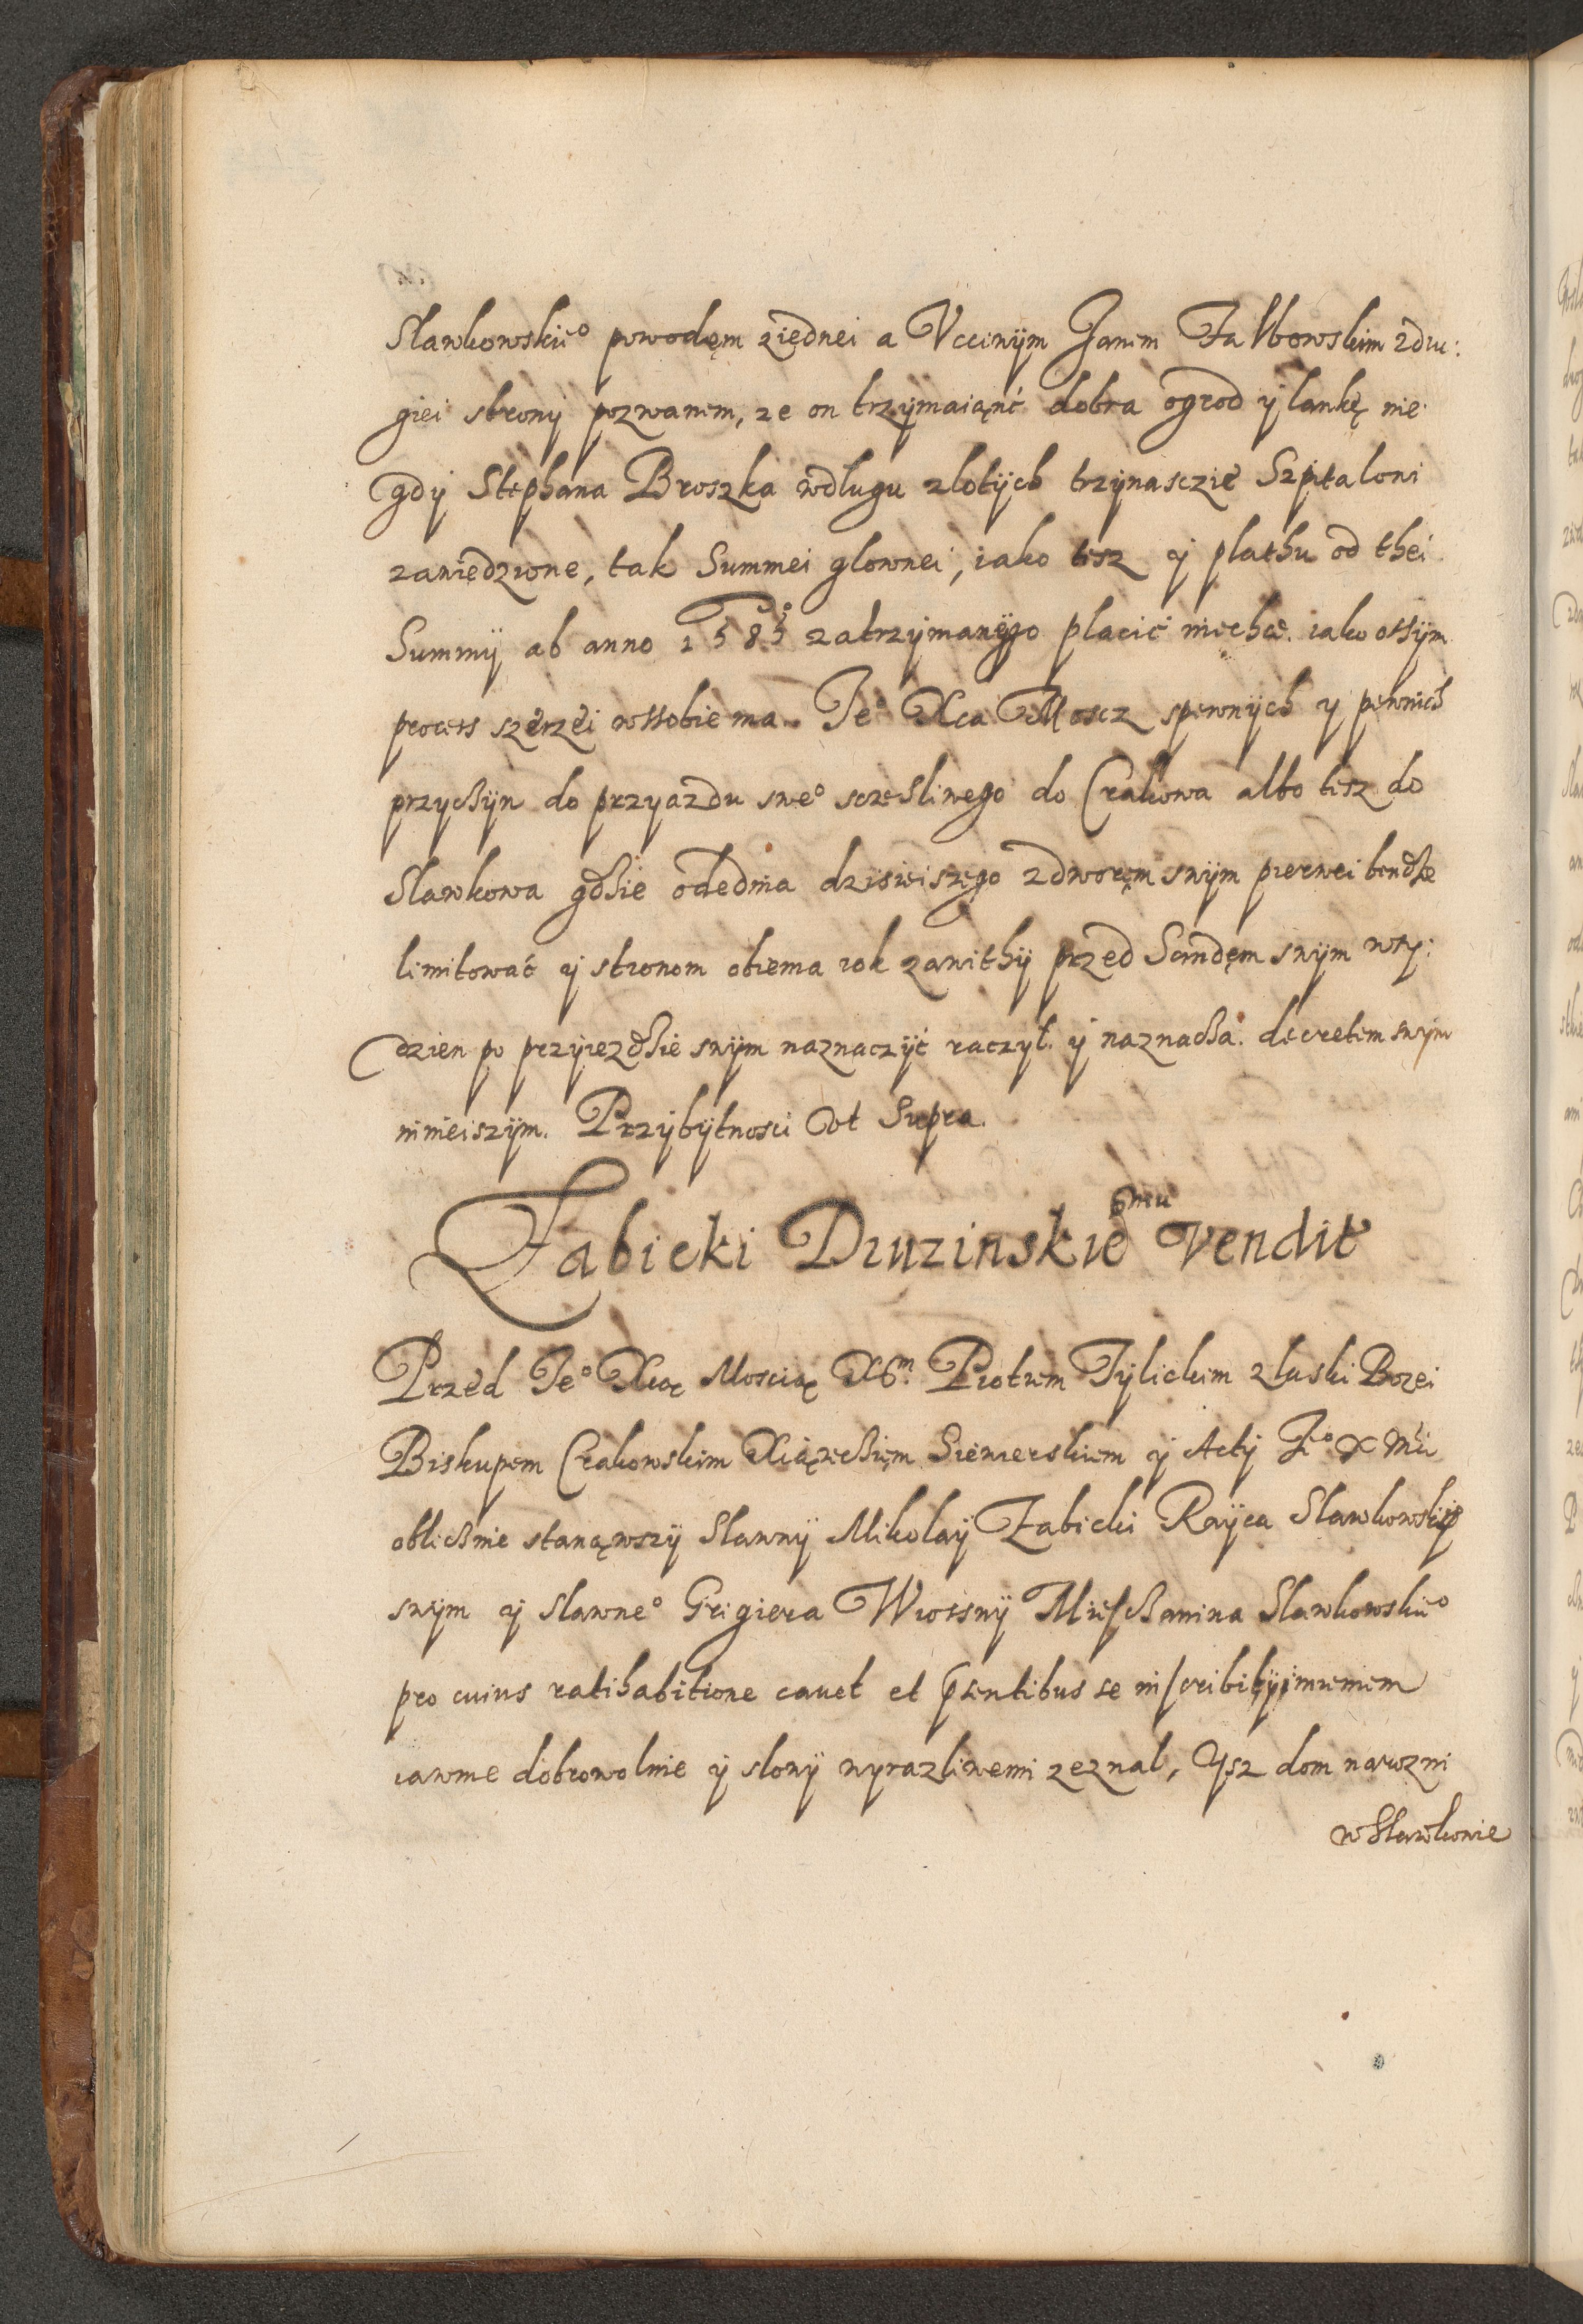 Slawkowskie° powodęm ziednei a Vcciwÿm Janem Falkowskim zdru:
giei stronÿ pozwanem, ze on trzÿmaiąnć dobra ogrod ÿ lankę nie
gdÿ Stephana Broszka wdlugu zlotÿch trzÿnasczie Szpitalowi
zawiedzione, tak Summei glownei, iako tesz ÿ plathu od thei
Summÿ ab anno 1585° zatrzÿmanęgo placić niechce. iako ossÿm
process szerzei wssobie ma. Je° Xca Moscz spewnÿch y pewnich
przyczÿn do przyazdu swe° sczesliwego do Crakowa albo tesz do
Slawkowa gdzie ode dnia dzisieiszego zdworęm swÿm pierwei bendze
limitować ÿ stronom obiema rok zawithÿ przed Sandęm swÿm wtÿ:
dzien po przÿiezdzie swÿm naznaczÿć raczÿl. ÿ naznacza. decretem swÿm
ninieiszÿm. Przÿbÿtnosci vt Supra.
Zabicki Druzinskie°mu vendit
Przed Je° Xcią Mosczią X°m. Piotrem Tÿlickim zlaski Bozei
Biskupem Crakowskim Xiążeciem Siewierskiem ÿ Actÿ Je° X Mci
oblicznie stanąwszÿ Slawnÿ Mikolaÿ Zabicki Raÿca Slawkowskÿ
swÿm ÿ slawne° Grigiera Wrossnÿ Miesczanina Slawkowskie°
pro cuius ratihabitione cauet et pȓsentibus se inscribit ÿ imieniem
iawnie dobrowolnie ÿ slowÿ wyrazliwemi zeznal, Ysz dom narozni
w Slawkowie